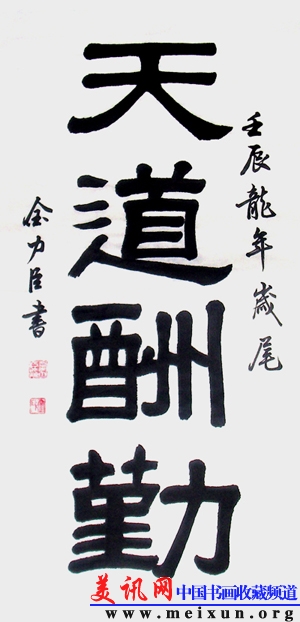 壬辰龍年歲尾
天道酬勤
金力臣書
美讯网 中国书画收藏频道
www.meixun.org